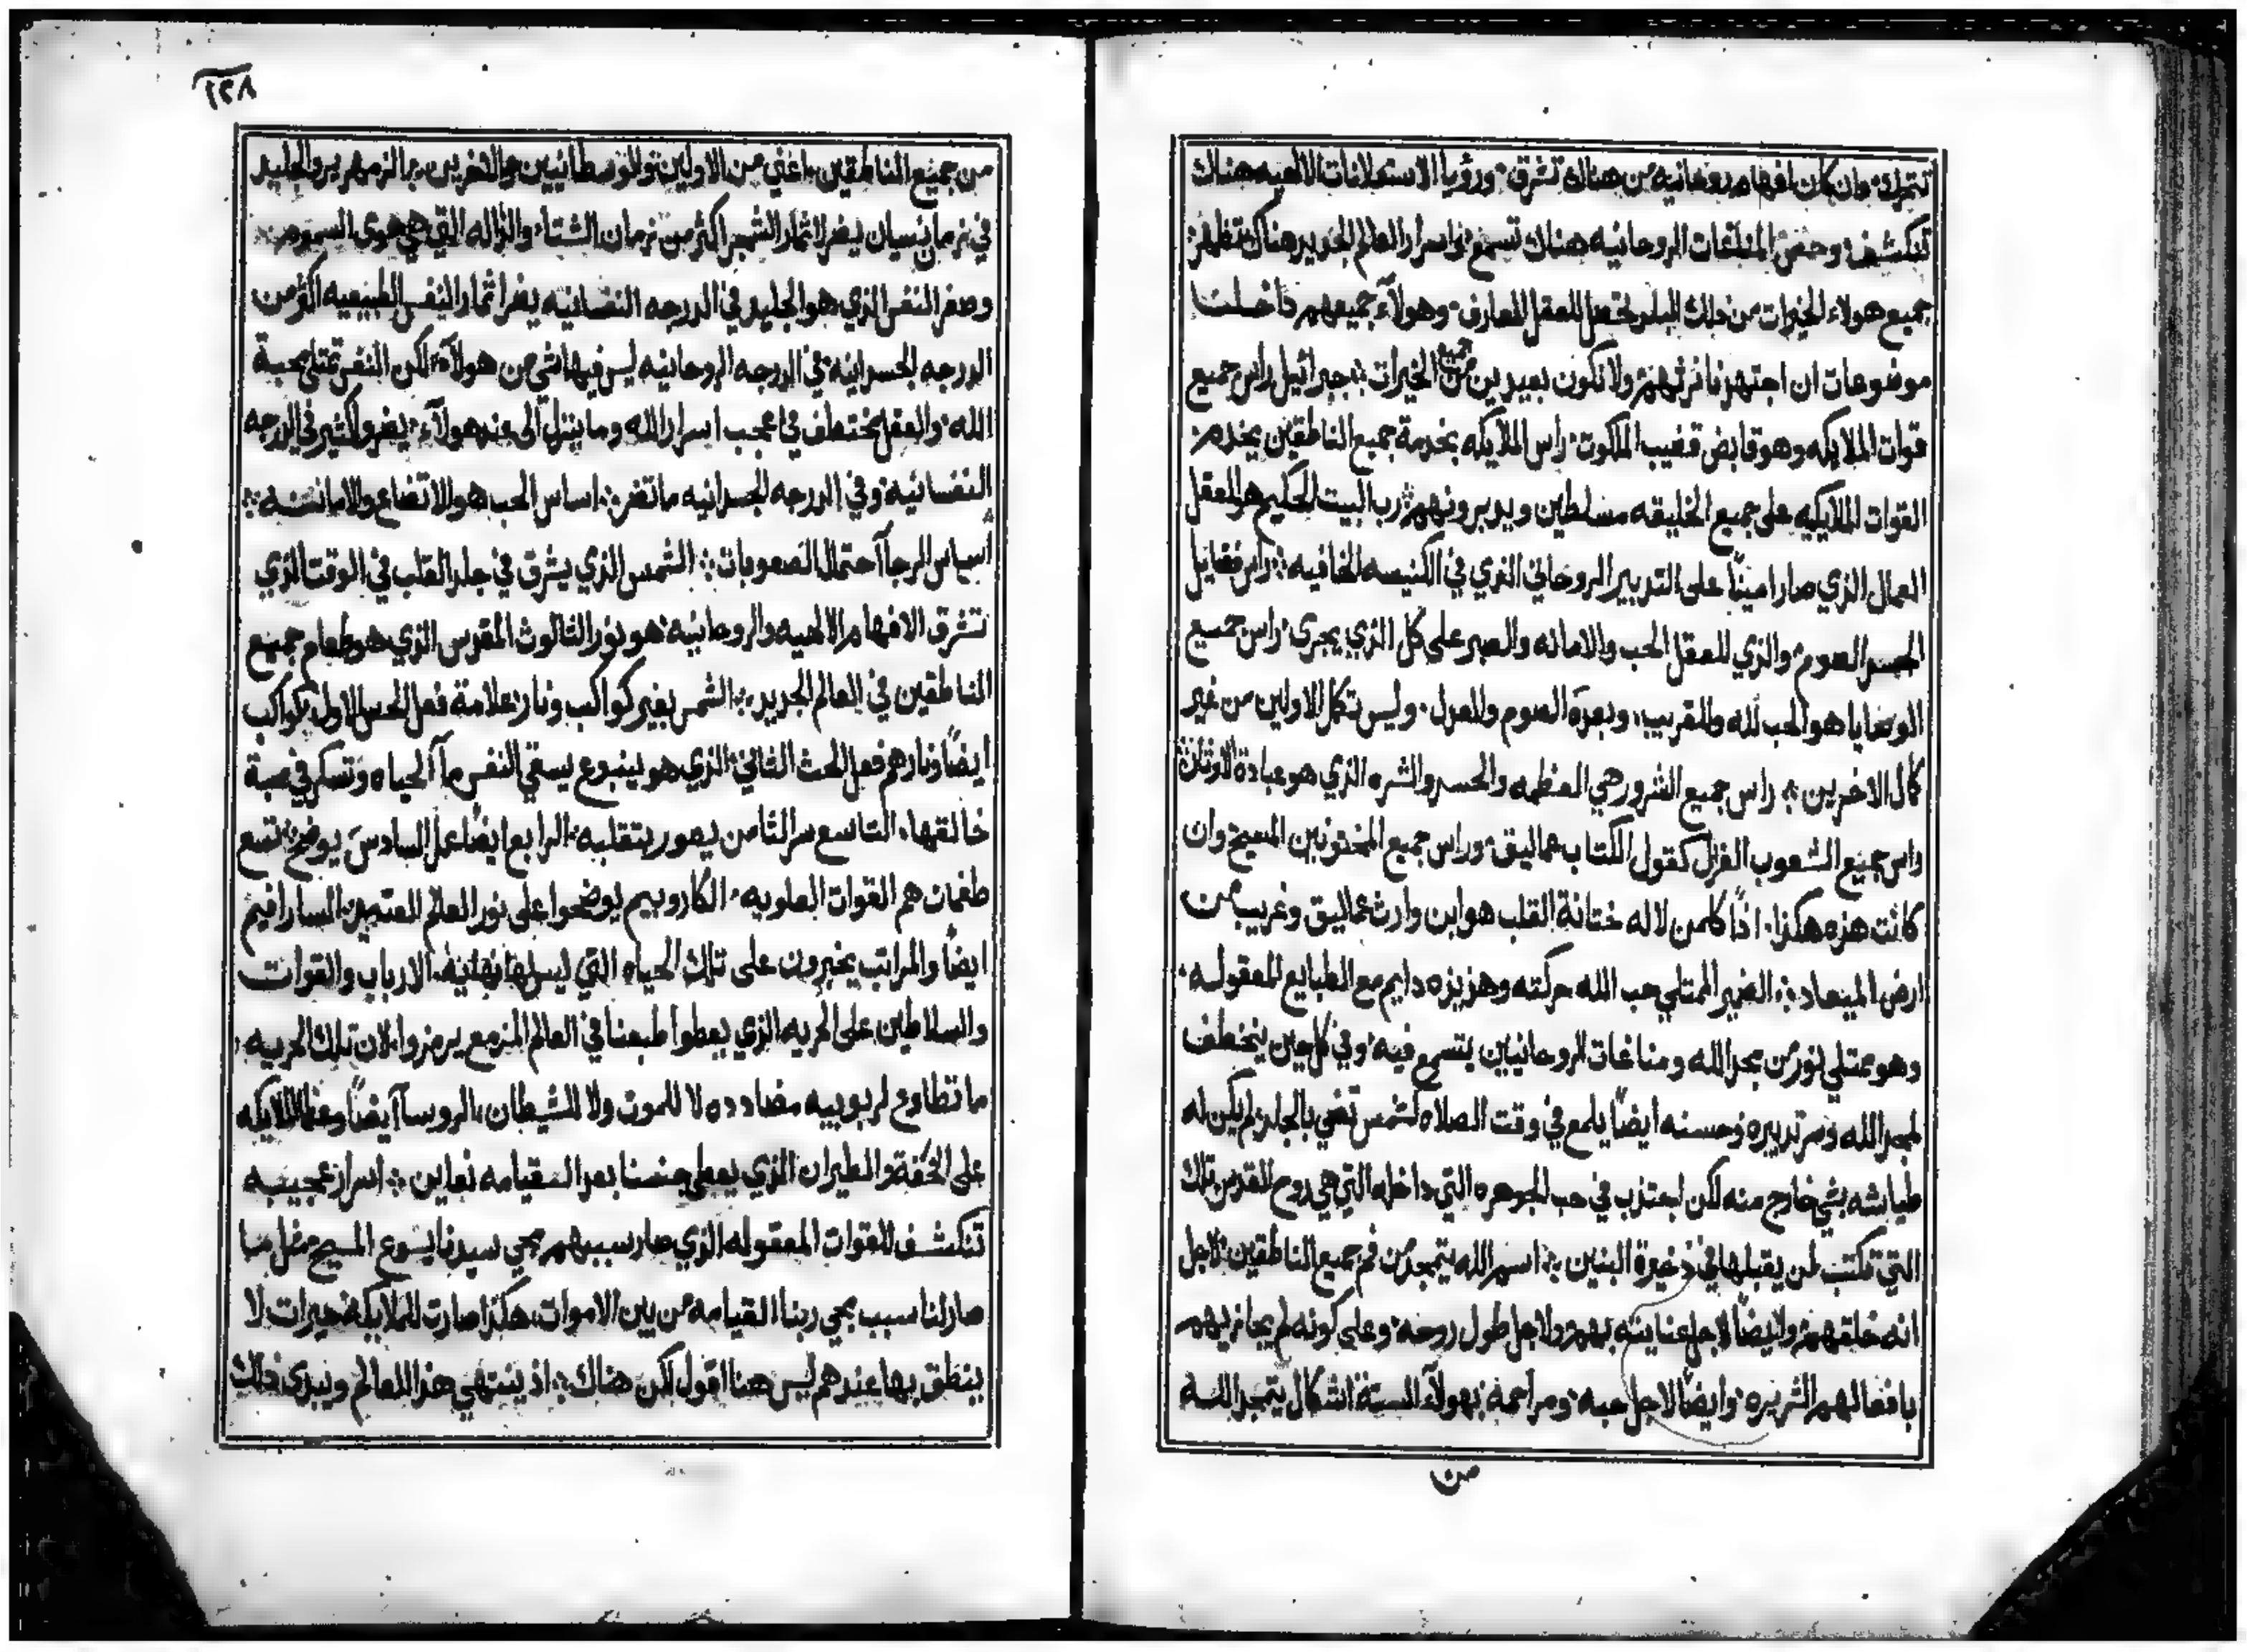 تتحرك وان كان افهام روحانيه من هناك تشرق ورؤيا الاستعلانات الالهيه هناك
تنكشف وحتى المناغات الروحانيه هناك تسمع واسرار العالم الجديد هناك تظهر
جميع هولاء الخيرات من ذلك البلد تحتمل للعقل المعارف وهولآء جميعهم داخلنا
موضوعات ان اجتهدنا نرثهم ولا نكون بعيدين من جميع الخيرات جبرائيل راس جميع
قوات الملايكه وهو قابض قضيب الملكوت راس الملايكه بخدمة جميع الناطقين يخدم
القوات الملايكيه على جميع الخليقه مسلطين ويدبرونهم رب البيت الحكيم هو العقل
العمال الذي صار امينًا على التدبير الروحاني الذي في الكنيسه الخافيه راس فضايل
الجسد الصوم والذي للعقل الحب والامانه والصبر على كل الذي يجرى راس جميع
الوصايا هو الحب لله وللقريب وبعده الصوم والعزل وليس تكمل الاولين من غير
كمال الاخرين راس جميع الشرور هي العظمه والحسد والشره الذي هو عبادة الاوثان
راس جميع الشعوب الغزل كقول الكتاب عماليق وراس جميع المختونين المسيح وان
كانت هذه هكذا اذًا كلمن لا له ختانة القلب هو ابن وارث عماليق وغريب من
ارض الميعاد الضمير الممتلي حب الله حركته وهذيذه دايم مع الطبايع المعقوله
وهو ممتلي نور من مجد الله ومناغات الروحانيين يتسمع فيه وفي كل حين ينخطف
لمجد الله وسر تدبيره وحسنه ايضًا يلمع في وقت الصلاه كشمس تضي بالجلد لم يكن له
طياشه بشي خارج منه لكن انجذب في حب الجوهره التي داخله التي هي روح القدس تلك
التي تكتب لمن يقبلها في ذخيرة البنين اسم الله يتمجد من فم جميع الناطقين لاجل
انه خلقهم وايضًا لاجل عنايته بهم ولاجل طول روحه وعلى كونه لم يجازيهم
بافعالهم الشريره وايضًا لاجل حبه ومراحمه بهولآء الستة اشكال يتمجد الله
من
١٢٨
من جميع الناطقين اعني من الاولين والوسطانيين والاخرين الزمهرير والجليد
في زمان نيسان يضر لاثمار الشجر اكثر من زمان الشتاء والزاله التي هي هوى السموم
وصغر النفس الذي هو الجليد في الدرجه النفسانيه يضر اثمار النفس الطبيعيه اكثر من
الدرجه الجسدانيه في الدرجه الروحانيه ليس فيها شي من هولآء لكن النفس تمتلي محبة
الله والعقل يختطف في اعجب اسرار الله وما ينزل الى عند هولآء يضر والكثير في الدرجه
النفسانيه وفي الدرجه الجسدانيه ما تضر اساس الحب هو الاتضاع والامانه
اساس الرجا احتمال الصعوبات الشمس الذي يشرق في جلد القلب في الوقت الذي
تشرق الافهام الالهيه والروحانيه هو نور الثالوث المقدس الذي هو طعام جميع
الناطقين في العالم الجديد الشمس بغير كواكب ونار علامة فعل الحس الاول كواكب
ايضًا ونار هم فعل الحث الثاني الذي هو ينبوع يسقي النفس مآ الحياه وتسكر في محبة
خالقها التاسع سر الثامن يصور بتقلبه الرابع ايضًا عمل السادس يوضح تسع
طغمات هم القوات العلويه الكاروبيم يوضحوا على نور العالم العتيد السارافيم
ايضًا والمراتب يخبرون على تلك الحياه التي ليس لها نهايه الارباب والقوات
والسلاطين على الحريه الذي يعطوا طبعنا في العالم المزمع يرمزوا لان تلك الحريه
ما تطاوع لربوبيه مضادده لا للموت ولا للشيطان الروسا ايضًا ومعهم الملايكه
على الخفة والطيران الذي يعطي جنسنا بعد القيامه نعاين اسرار عجيبه
تنكشف للقوات المعقوله الذي صار سببهم مجي سيدنا يسوع المسيح مثل ما
صار لنا سبب مجي ربنا القيامه من بين الاموات هكذا صارت للملايكه خيرات لا
ينطق بها عندهم ليس هنا اقول لكن هناك اذ ينتهي هذا العالم ويبدى ذلك